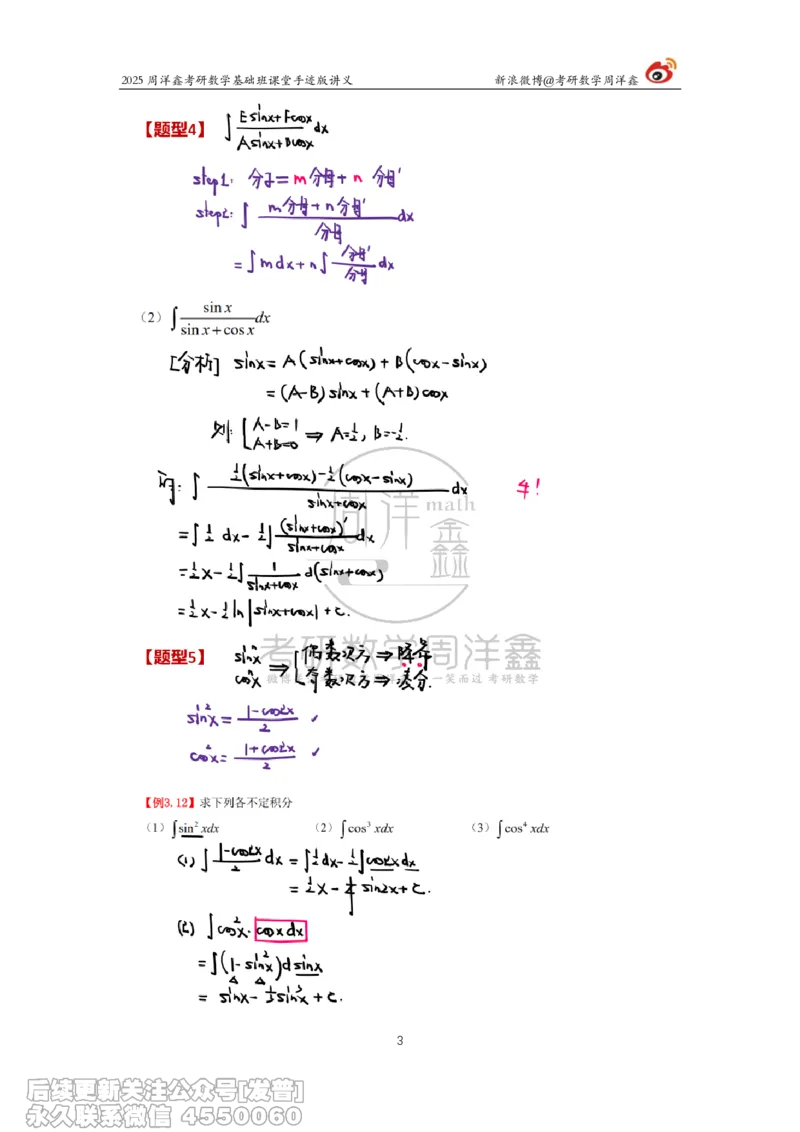 2025 周洋鑫考研数学基础班课堂手迹版讲义 新浪微博@考研数学周洋鑫
【题型4】 ∫ (Esinx+Fcosx)/(Asinx+Bcosx) dx
step1: 分子=m分母+n 分母'
step2: ∫ (m分母+n分母')/分母 dx
=∫mdx+n∫ 分母'/分母 dx
(2) ∫ sin x/(sin x+cos x) dx
[分析] sinx=A(sinx+cosx)+B(cosx-sinx)
=(A-B)sinx+(A+B)cosx
则: { A-B=1 A+B=0 ⇒ A=1/2, B=-1/2.
∫ (1/2(sinx+cosx)-1/2(cosx-sinx))/(sinx+cosx) dx
=∫1/2 dx-1/2∫ (sinx+cosx)'/(sinx+cosx) dx
=1/2x-1/2∫ 1/(sinx+cosx) d(sinx+cosx)
=1/2x-1/2ln|sinx+cosx|+C.
周洋鑫 math
考研数学周洋鑫
【题型5】 sinⁿx cosⁿx ⇒ { 偶数次方⇒降幂 奇数次方⇒凑分.
一笑而过 考研数学
sin²x= (1-cos2x)/2 ✓
cos²x= (1+cos2x)/2 ✓
【例3.12】求下列各不定积分
(1) ∫sin² xdx (2) ∫cos³ xdx (3) ∫cos⁴ xdx
(1) ∫ (1-cos2x)/2 dx =∫1/2dx-1/2∫cos2xdx
=1/2x-1/4sin2x+C.
(2) ∫cos²x·cosxdx
=∫(1-sin²x)dsinx
= sinx-1/3sin³x+C.
3
后续更新关注公众号[发普]
永久联系微信 4550060